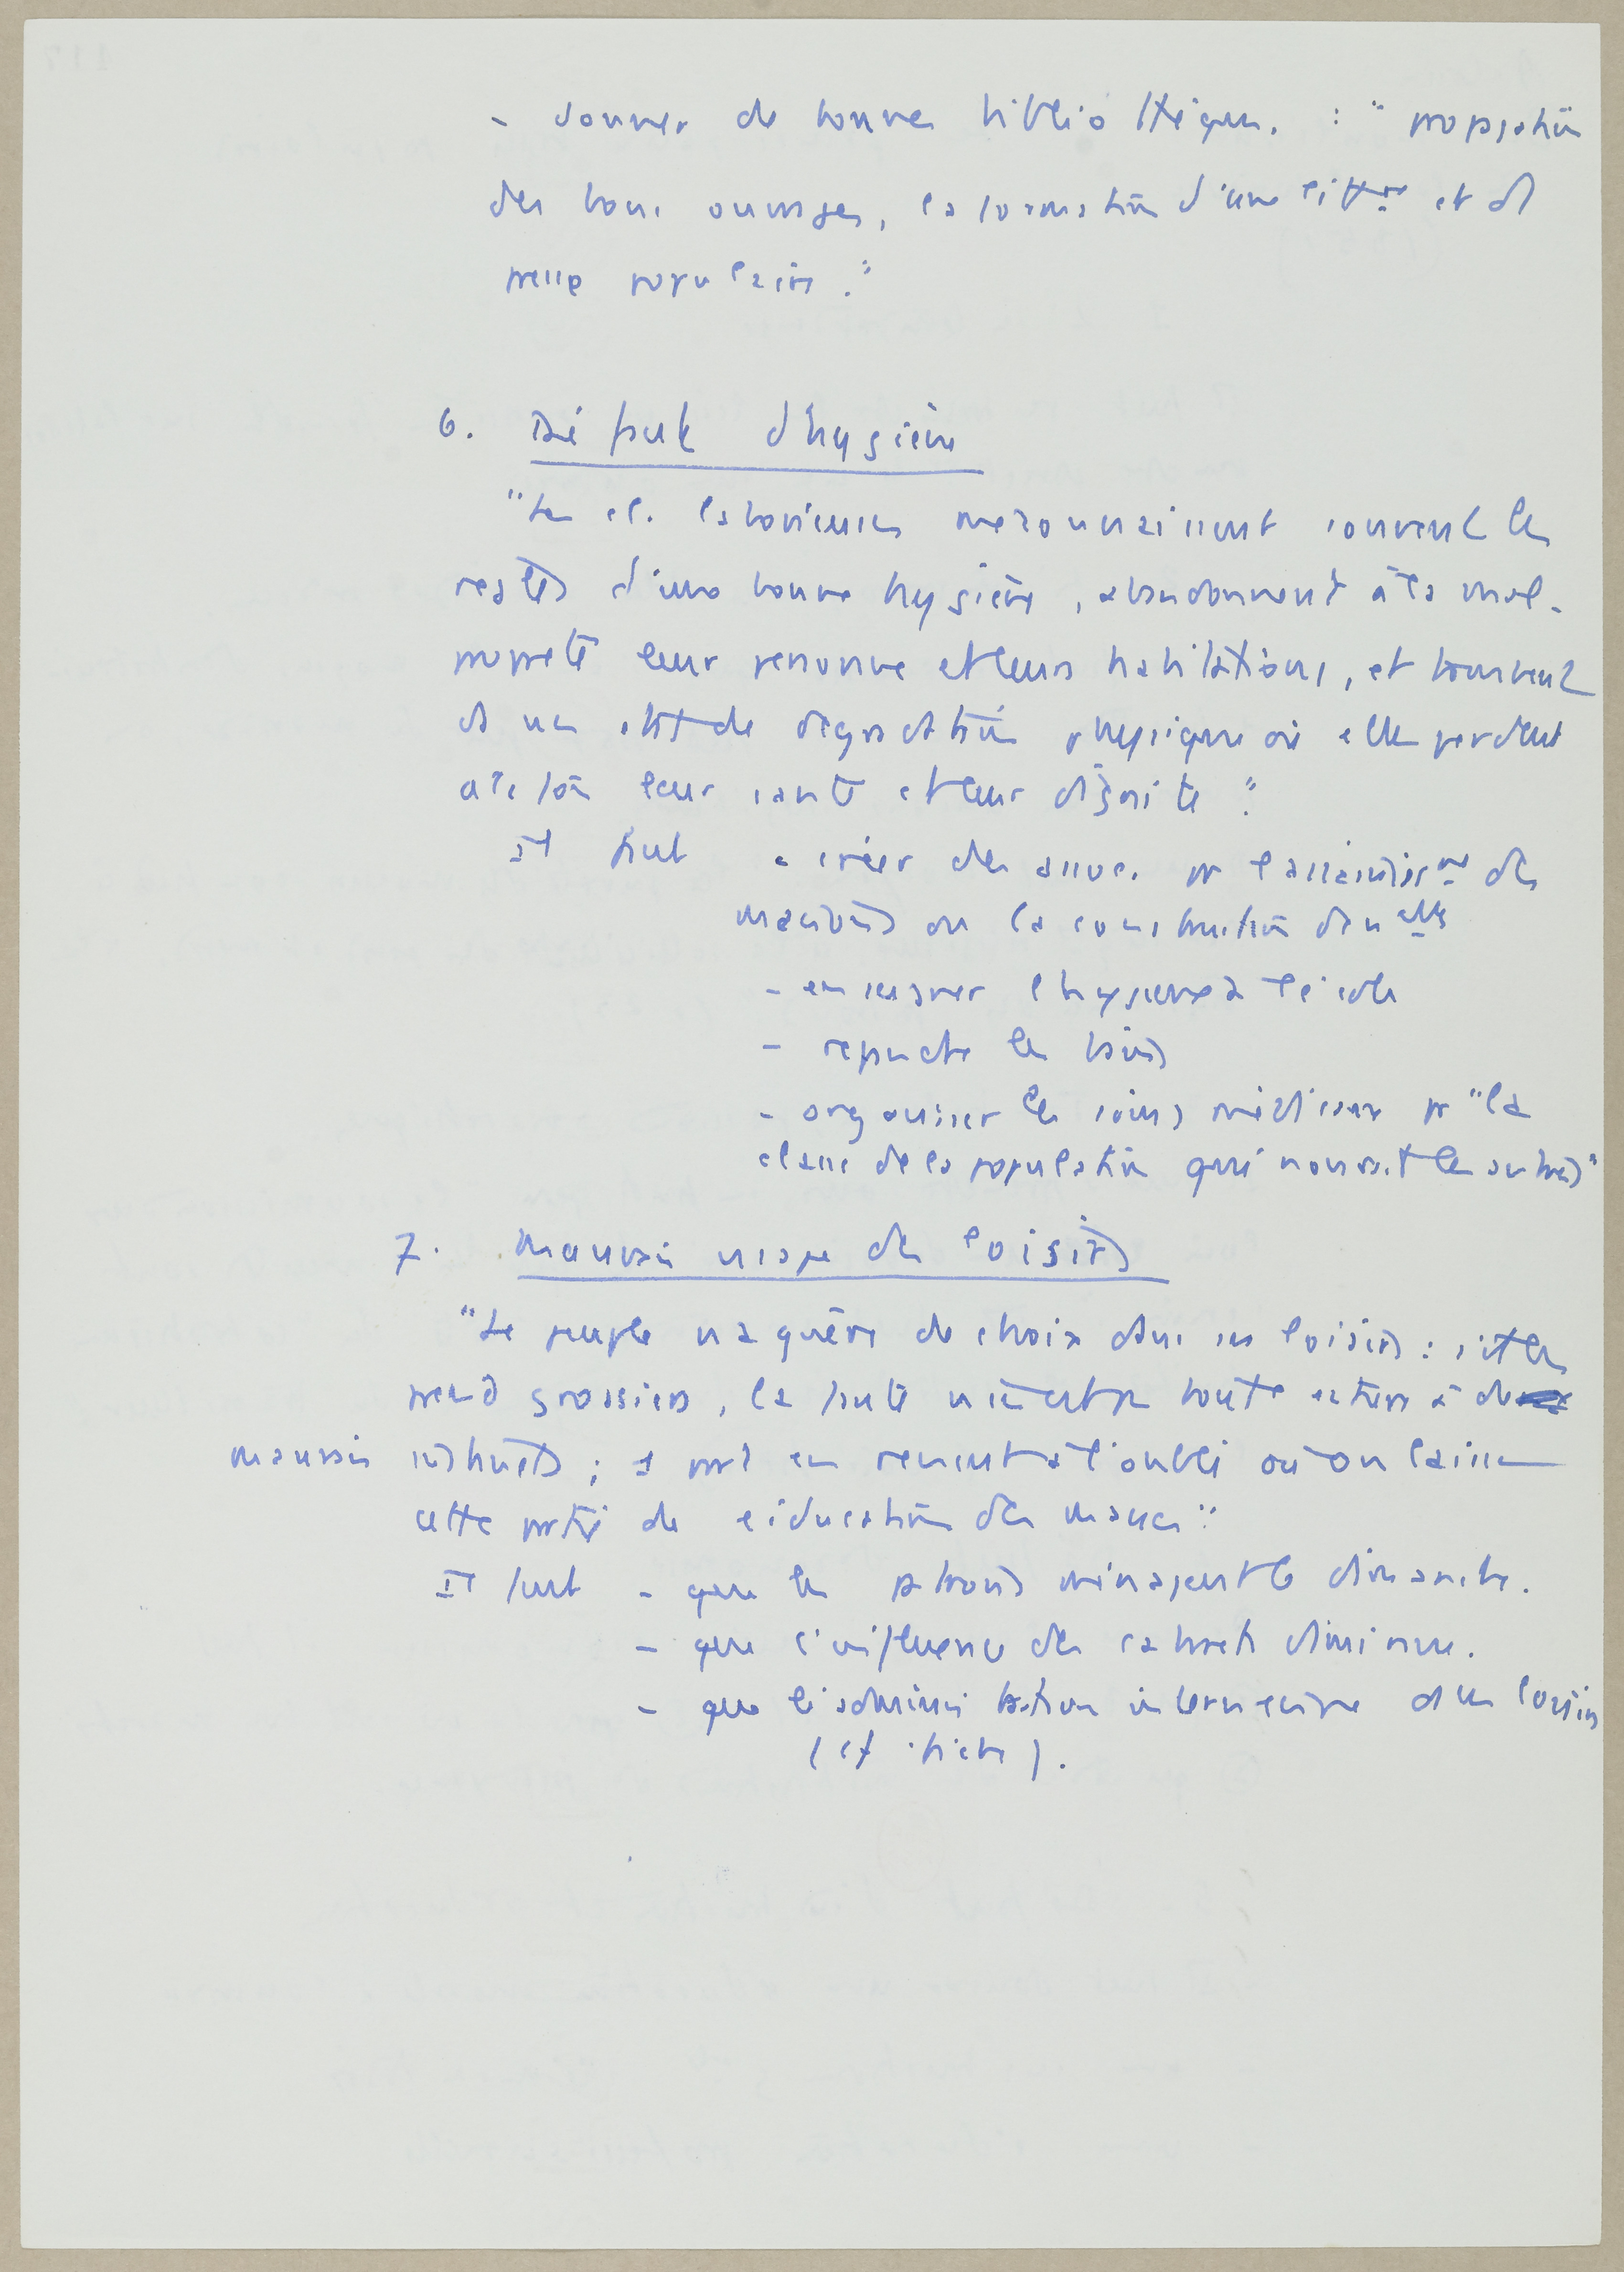 - donner de bonnes bibliothèques. : "propagation
des bons ouvrages, la formation d'une litt.re et d
presse populaires."
6. Défaut d'hygiène
"Les cl. laborieuses méconnaissent souvent les
règles d'une bonne hygiène, abandonnent à la mal-
propreté leur personne et leurs habitations, et tombent
ds un état de dégradation physique où elles perdent
à la fois leur santé et leur dignité."
Il faut - créer des assoc. pr l'assainisst des
maisons ou la construction d'nelles
- enseigner l'hygiène à l'école
- répandre les bains
- organiser les soins médicaux pr "la
classe de la population qui nourrit les autres"
7. Mauvais usage des loisirs
"Le peuple n'a guère de choix dans ses loisirs : s'il les
prend grossiers, la faute n'en est pas toute entière à de
mauvais instincts ; 1 part en revient à l'oubli où on laisse
cette partie de l'éducation des masses"
Il faut - que les patrons ménagent le dimanche.
- que l'influence des cabarets diminue.
- que l'administration intervienne ds les loisirs
(cf. théâtre).